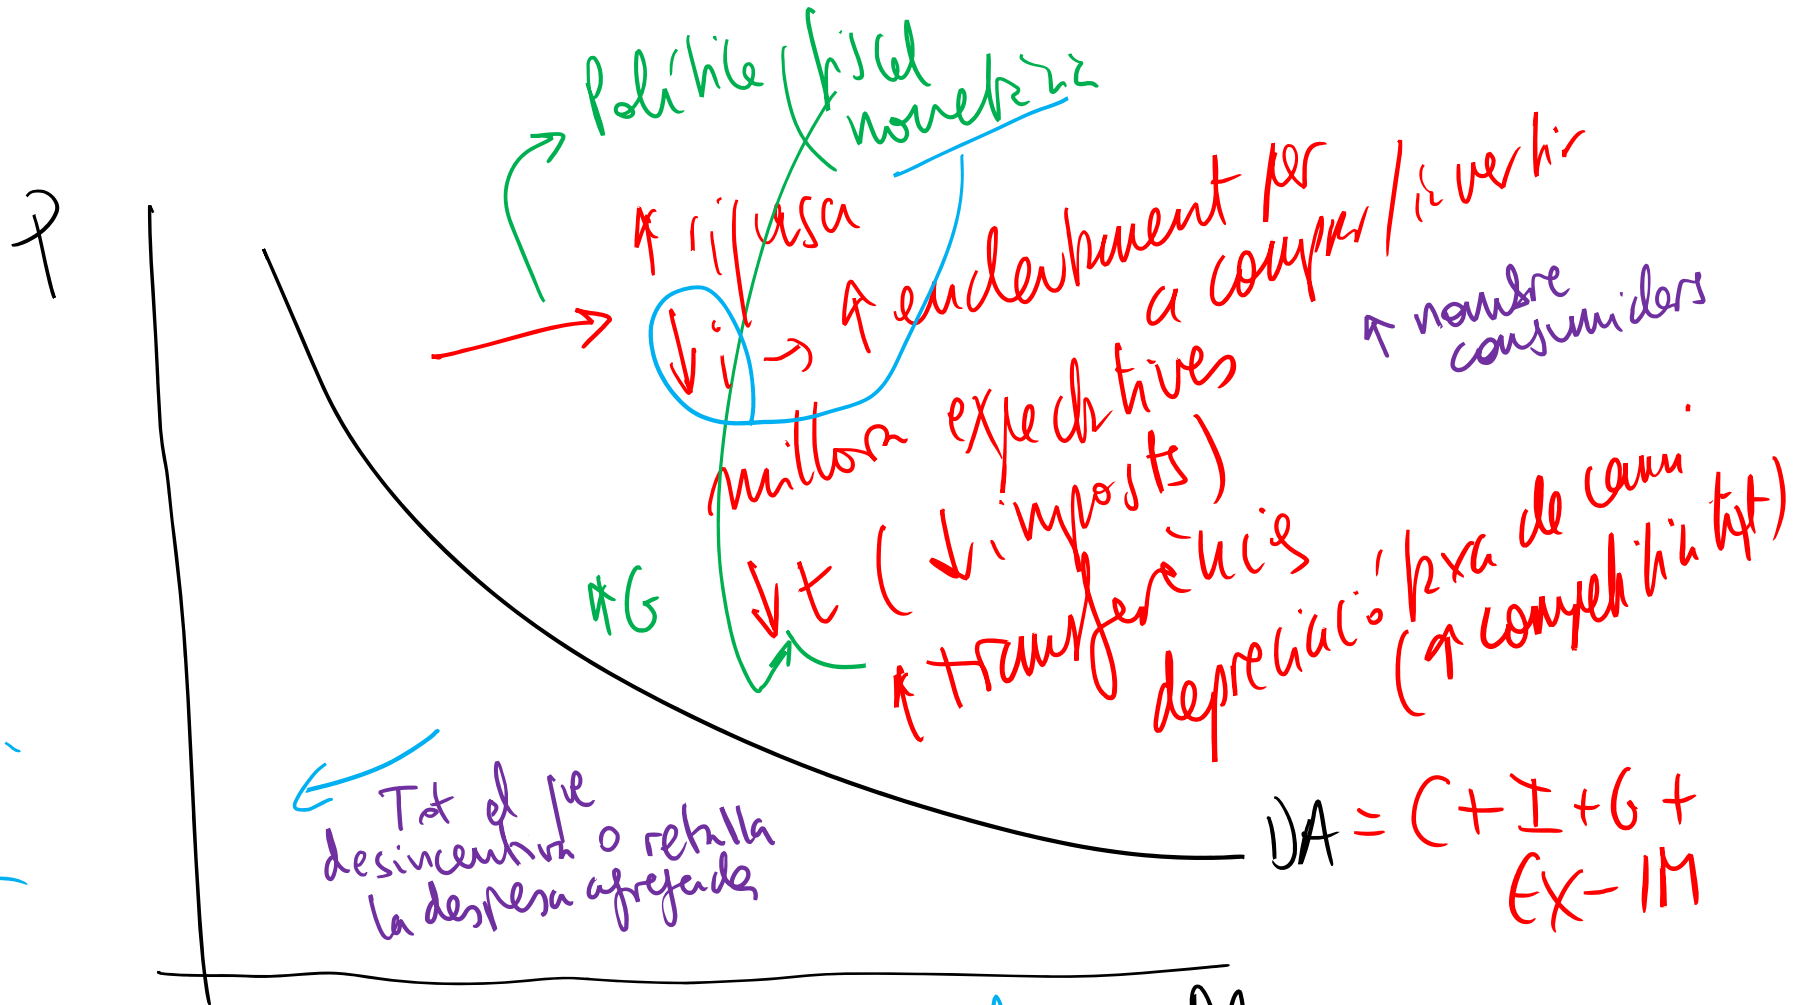 Política fiscal
monetària
P
↑ riquesa
↓i → ↑ endeutament per
a comprar/invertir
↑ nombre
consumidors
millora expectatives
↓t (↓ imposts)
↑ transferències
↑G
depreciació taxa de canvi
(↑ competitivitat)
Tot el que
desincentiva o retalla
la despesa agregada
DA = C + I + G +
EX - IM